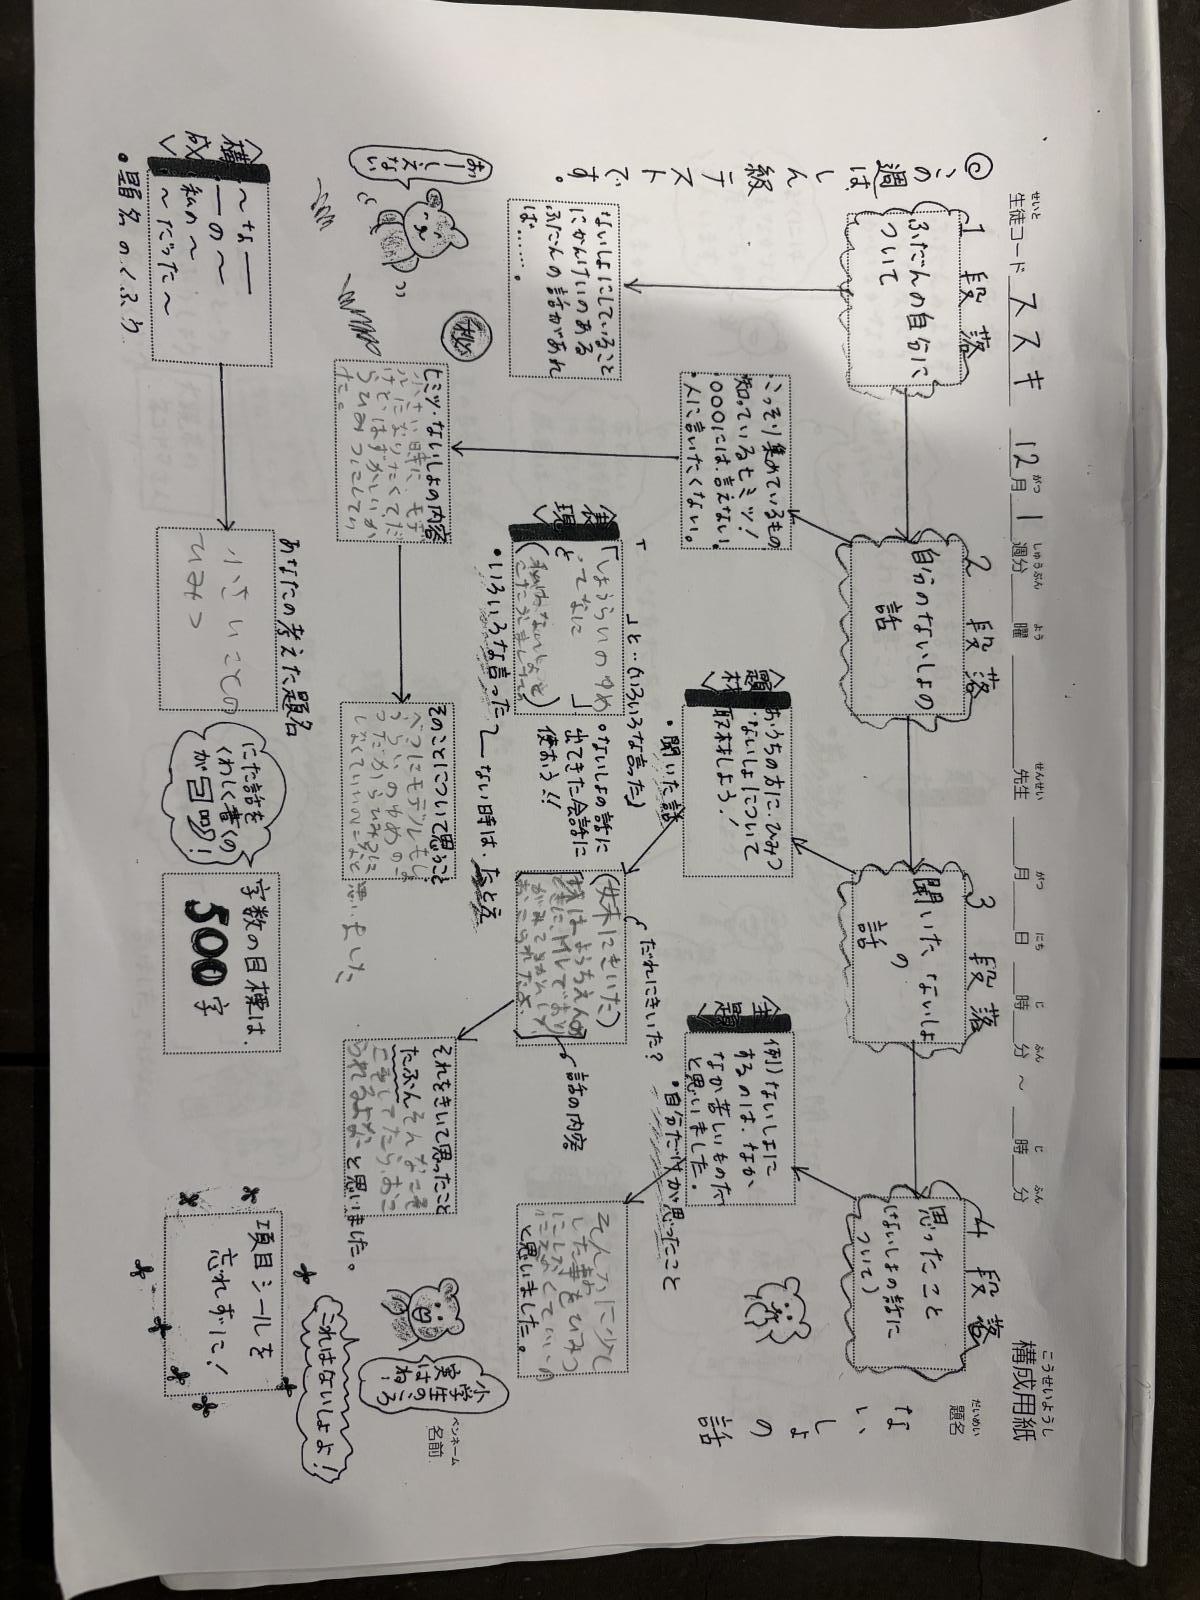 構成用紙
こうせいようし
生徒コード ススキ 12月 1週分 曜 先生 月 日 時 分 ～ 時 分
せいと がつ しゅうぶん よう せんせい がつ にち じ ふん じ ふん
題名
だいめい
ないしょの話
◎この週は
しん級テストです。
1段落
ふだんの自分に
ついて
2段落
自分のないしょの
話
3段落
聞いたないしょ
の
話
4段落
思ったこと
(ないしょの話に
ついて)
ないしょにしていること
にかんけいのある
ふだんの話があれ
ば……。
・こっそり集めているもの
・知っているヒミツ!
・〇〇〇には、言えない!
・人に言いたくない。
〈題材〉
おうちの方に、ひみつ
ないしょについて
取材しよう!
・聞いた話
〈主題〉
例)ないしょに
するのは、なか
なか苦しいものだ
と思いました。
・自分だけが思ったこと
ヒミツ・ないしょの内容
小さい時に、モデ
ルになりたくて、だ
けど、はずかしいか
らひみつにしてい
た。
〈表現〉
「 」と…(いろいろな言った)
「しょうらいのゆめ
ってなに」
と
・ないしょの話に
出てきた会話に
使おう!!
・いろいろな言った
ない時は、たとえ
だれにきいた?
(妹にきいた)
話の内容
そのことについて思うこと
べつにモデルもしょ
うらいのゆめの一
つだからひみつに
しなくていいのになと
思いました
それをきいて思ったこと
たぶんそんなこえ
と思いました。
そんなに少し
した事をひみつ
にしなくていいの
と思いました。
おーしえない
秘
〈構成〉
～な――
――の～
私の～
～だった～
・題名のくふう
あなたの考えた題名
小さいころの
ひみつ
にた話を
くわしく書くの
が◎!
字数の目標は、
500字
項目シールを
忘れずに!
小学生のころ
実はね!
これはないしょよ!
ペンネーム
名前